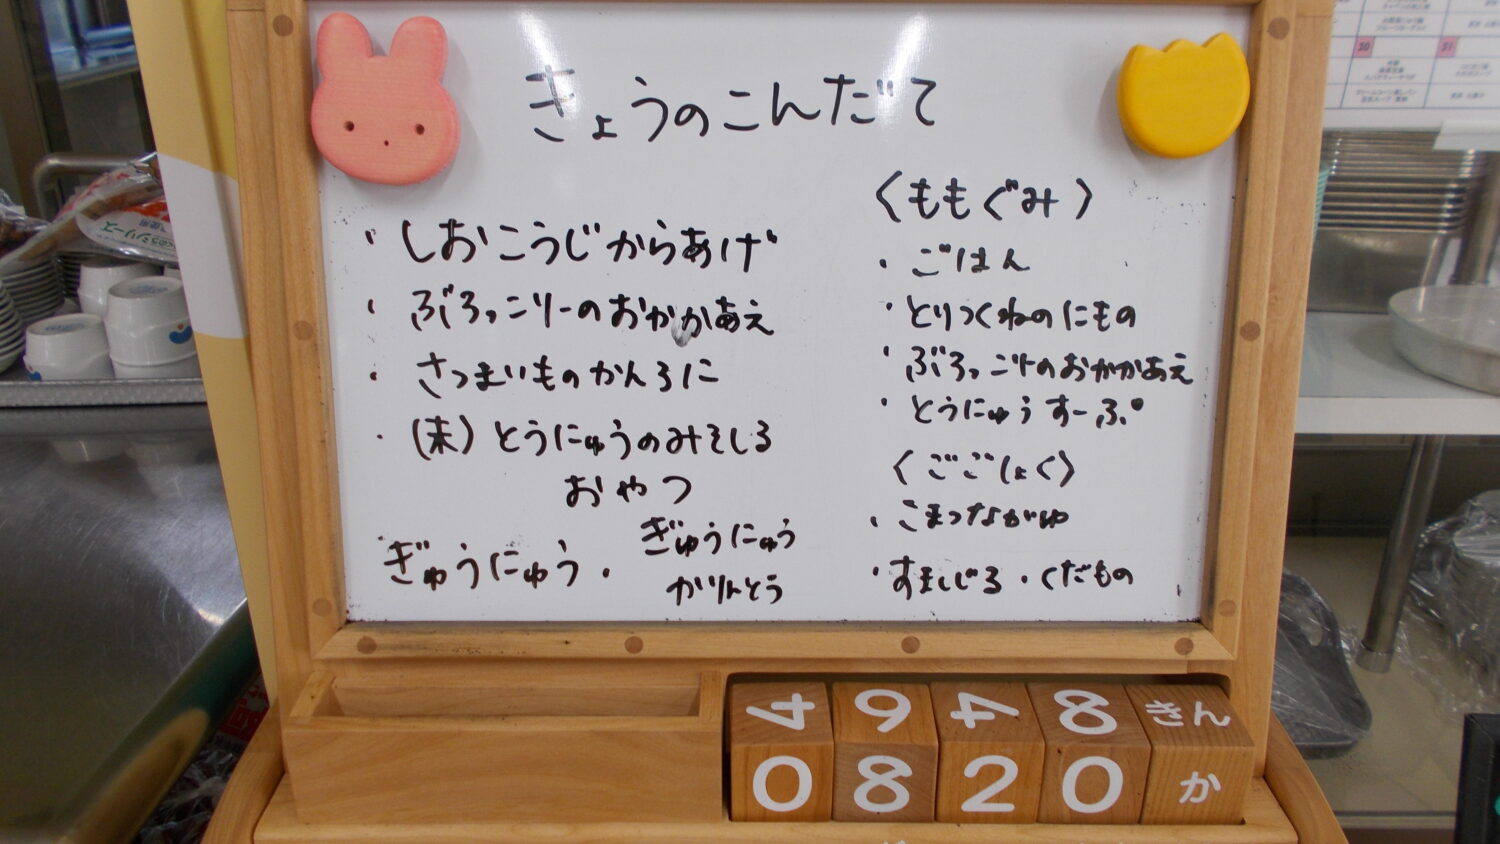 きょうのこんだて
・しおこうじからあげ
・ぶろっこりーのおかかあえ
・さつまいものかんろに
・(未)とうにゅうのみそしる
おやつ
ぎゅうにゅう・
ぎゅうにゅう
かりんとう
〈ももぐみ〉
・ごはん
・とりつくねのにもの
・ぶろっこりーのおかかあえ
・とうにゅうすーぷ
〈ごごしょく〉
・こまつながゆ
・すましじる・くだもの
4 9 4 8 きん
0 8 2 0 か
30 31